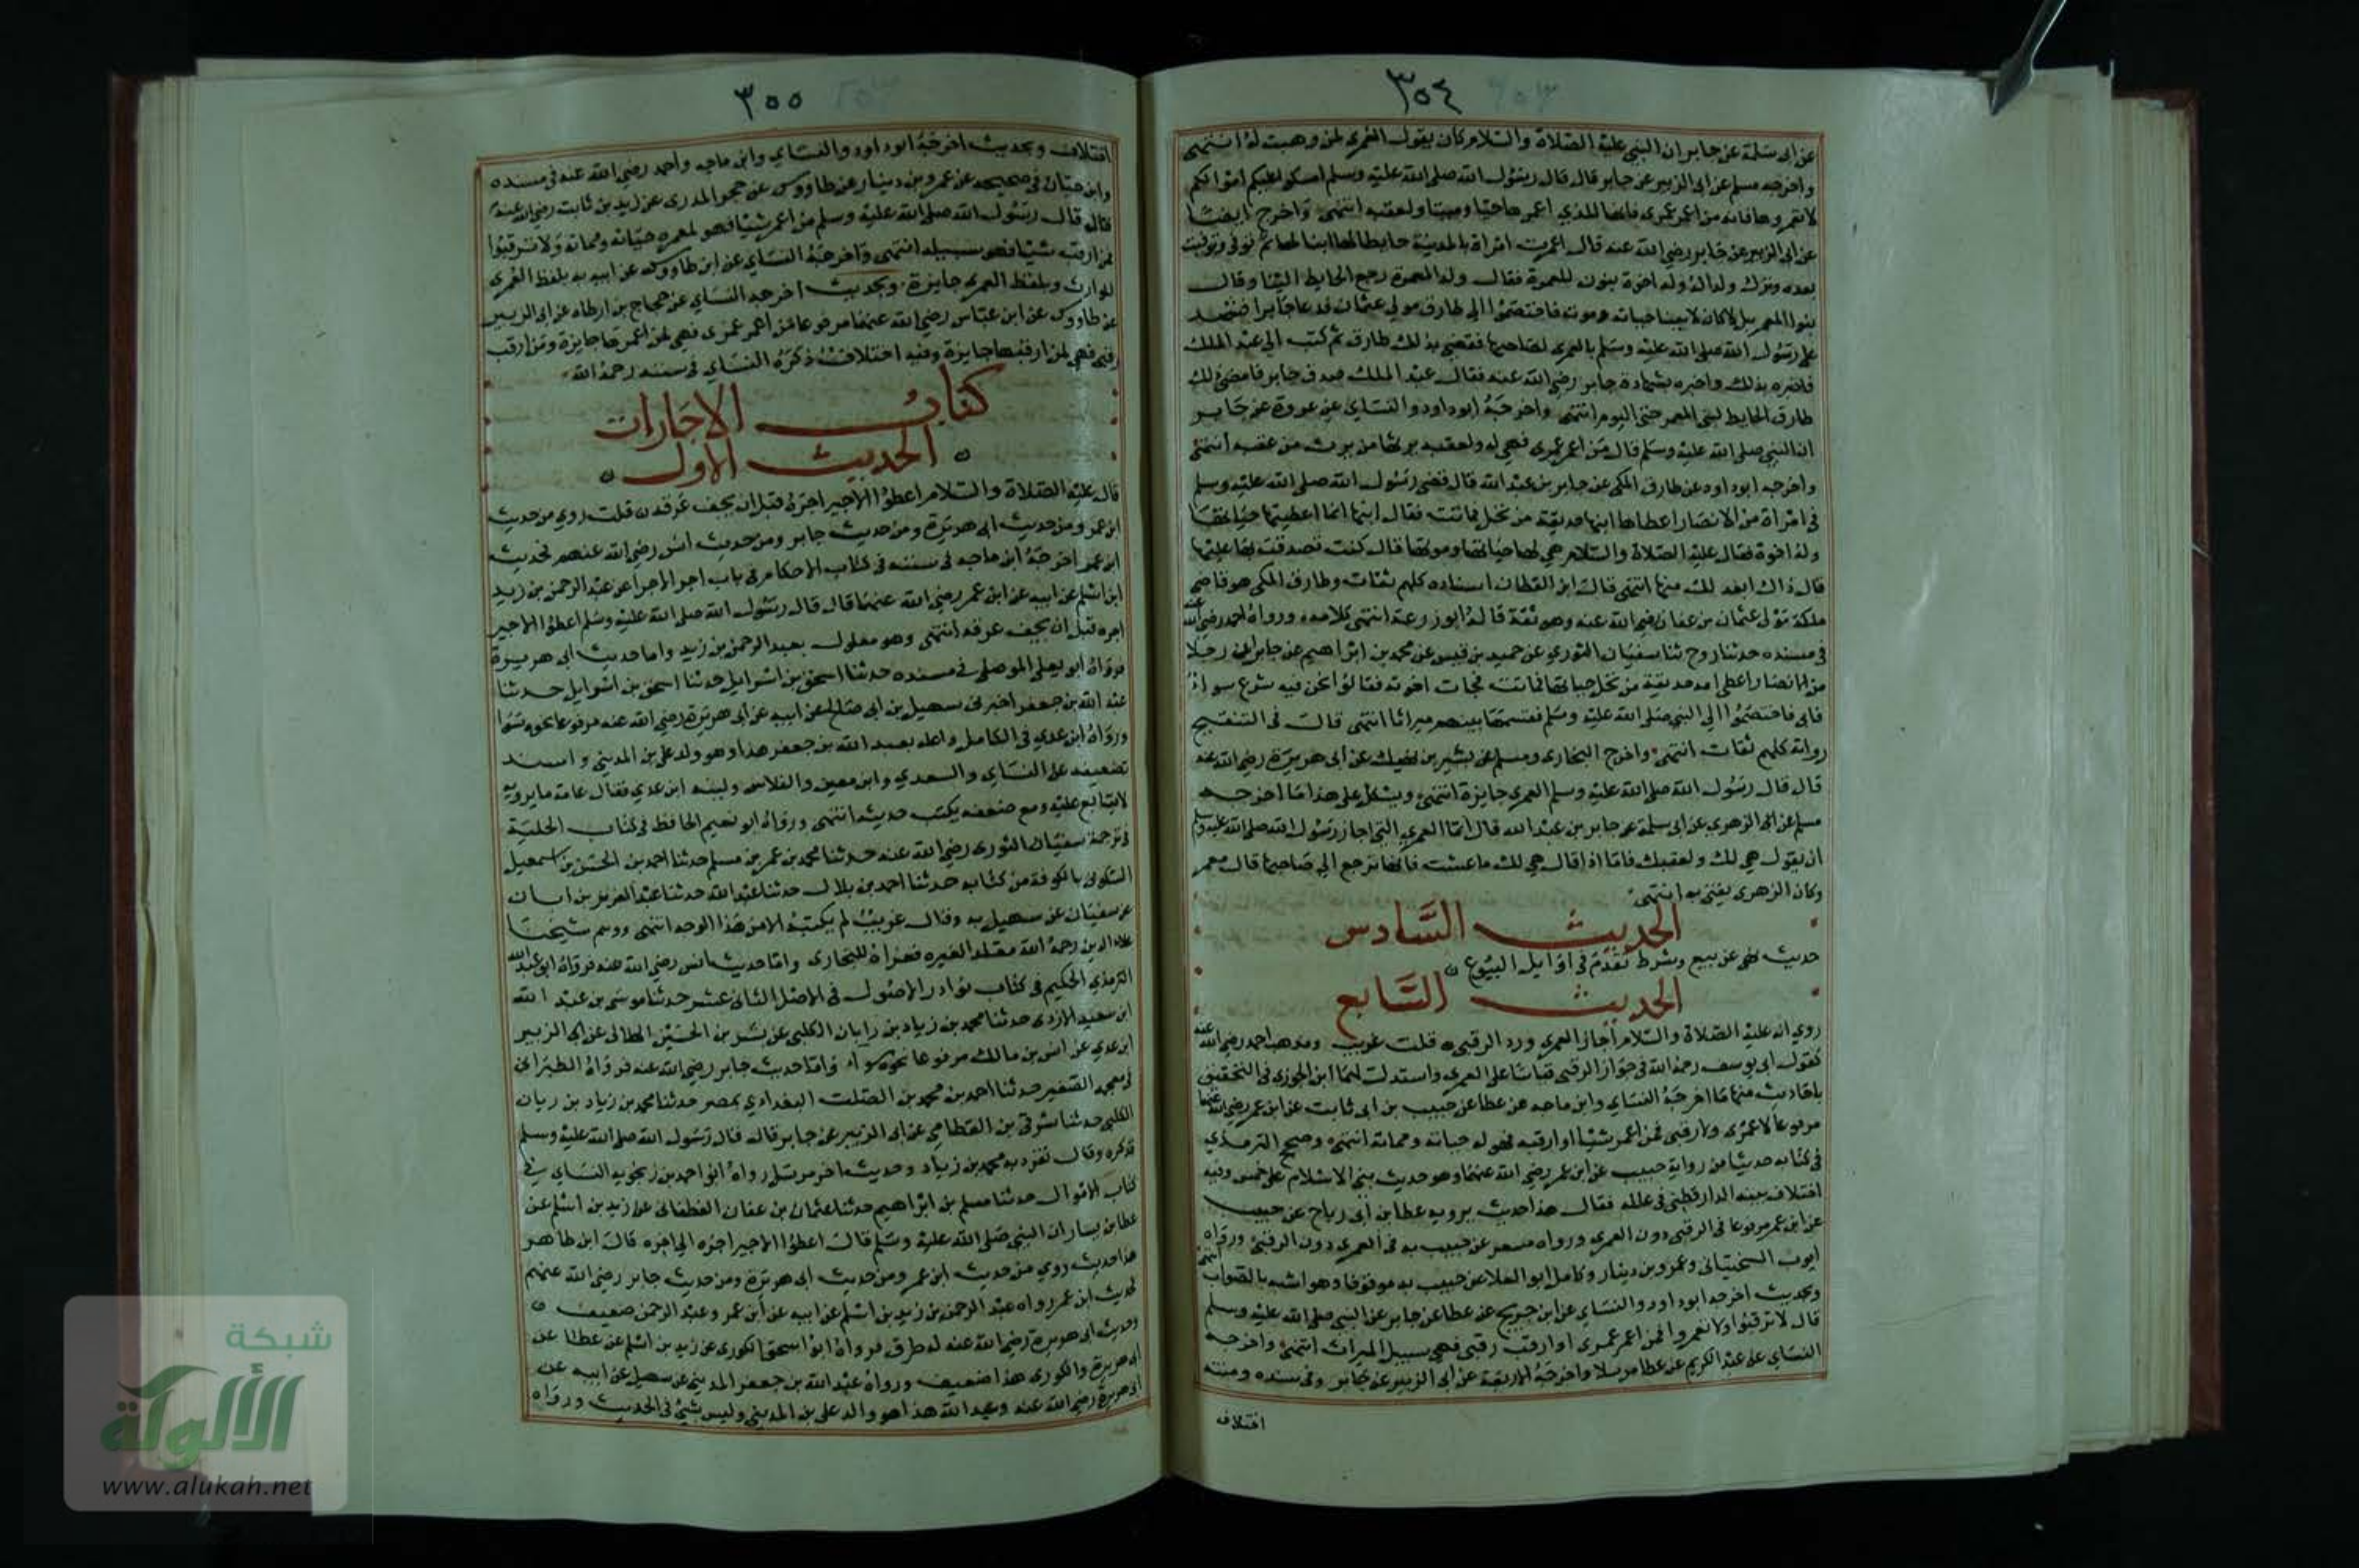 ٣٥٤
عن ابى سلمة عن جابر ان النبى عليه الصلاة والسلام كان يقول العمرى لمن وهبت له انتهى
واخرجه مسلم عن ابى الزبير عن جابر قال قال رسول الله صلى الله عليه وسلم امسكوا عليكم اموالكم
لا تعمروها فانه من اعمر عمرى فانها للذي اعمرها حيا وميتا ولعقبه انتهى واخرج ايضا
عن ابى الزبير عن جابر رضى الله عنه قال اعمرت امراة بالمدينة حايطا لها ابنا لها ثم توفى وتوفيت
بعده وترك ولدا له وله اخوة بنون للمعمرة فقال ولد المعمرة رجع الحايط الينا وقال
بنوا المعمر بل كان لابينا حياته وموته فاختصموا الى طارق مولى عثمان فدعا جابرا فشهد
على رسول الله صلى الله عليه وسلم بالعمرى لصاحبها فقضى بذلك طارق ثم كتب الى عبد الملك
فاخبره بذلك واخبره بشهادة جابر رضى الله عنه فقال عبد الملك صدق جابر فامضى ذلك
طارق الحايط لبنى المعمر حتى اليوم انتهى واخرجه ابو داود والنساي عن عروة عن جابر
ان النبى صلى الله عليه وسلم قال من اعمر عمرى فهى له ولعقبه يرثها من يرث من عقبه انتهى
واخرجه ابو داود عن طارق المكى عن جابر بن عبد الله قال قضى رسول الله صلى الله عليه وسلم
فى امراة من الانصار اعطاها ابنها حديقة من نخل فماتت فقال ابنها انما اعطيتها حياتها
وله اخوة فقال عليه الصلاة والسلام هى لها حياتها وموتها قال كنت تصدقت بها عليها
قال ذاك ابعد لك منها انتهى قال ابن القطان اسناده كلهم ثقات وطارق المكى هو قاضى
مكة مولى عثمان بن عفان رضى الله عنه وهو ثقة قاله ابو زرعة انتهى كلامه ورواه احمد رضى الله عنه
فى مسنده حدثنا روح ثنا سفيان الثورى عن حميد بن قيس عن محمد بن ابراهيم عن جابر ان رجلا
من الانصار اعطى امه حديقة من نخل حياتها فماتت فجات اخوته فقالوا نحن فيه شرع سواء
فابى فاختصموا الى النبى صلى الله عليه وسلم فقسمها بينهم ميراثا انتهى قال فى التنقيح
رواته كلهم ثقات انتهى واخرج البخارى ومسلم عن بشير بن نهيك عن ابى هريرة رضى الله عنه
قال قال رسول الله صلى الله عليه وسلم العمرى جايزة انتهى ويشكل على هذا ما اخرجه
مسلم عن الزهرى عن ابى سلمة عن جابر بن عبد الله قال انما العمرى التى اجاز رسول الله صلى الله عليه وسلم
ان يقول هى لك ولعقبك فاما اذا قال هى لك ما عشت فانها ترجع الى صاحبها قال معمر
وكان الزهرى يفتى به انتهى
الحديث السادس
حديث نهى عن بيع وشرط تقدم فى اوايل البيوع
الحديث السابع
روي انه عليه الصلاة والسلام اجاز العمرى ورد الرقبى قلت غريب ومذهب احمد رضى الله عنه
كقول ابى يوسف رحمه الله فى جواز الرقبى قياسا على العمرى واستدل لهما ابن الجوزى فى التحقيق
باحاديث منها ما اخرجه النساي وابن ماجه عن عطا عن حبيب بن ابى ثابت عن ابن عمر رضى الله عنهما
مرفوعا لا عمرى ولا رقبى فمن اعمر شيئا او ارقبه فهو له حياته ومماته انتهى وصحح الترمذي
فى كتابه حديثا من رواية حبيب عن ابن عمر رضى الله عنهما وهو حديث بنى الاسلام على خمس وفيه
اختلاف بينه الدارقطنى فى علله فقال هذا حديث يرويه عطا بن ابى رباح عن حبيب
عن ابن عمر مرفوعا فى الرقبى دون العمرى ورواه مسعر عن حبيب به فى العمرى دون الرقبى ورواه
ايوب السختيانى وعمرو بن دينار وكامل ابو العلا عن حبيب به موقوفا وهو اشبه بالصواب انتهى
وبحديث اخرجه ابو داود والنساي عن ابن جريج عن عطا عن جابر عن النبى صلى الله عليه وسلم
قال لا ترقبوا ولا تعمروا فمن اعمر عمرى او ارقب رقبى فهى سبيل الميراث انتهى واخرجه
النساي عن عبد الكريم عن عطا مرسلا واخرجه الاربعة عن ابى الزبير عن جابر وفى سنده ومتنه
اختلاف
٣٥٥
اختلاف وبحديث اخرجه ابو داود والنساي وابن ماجه واحمد رضى الله عنه فى مسنده
وابن حبان فى صحيحه عن عمرو بن دينار عن طاووس عن حجر المدرى عن زيد بن ثابت رضى الله عنه
قال قال رسول الله صلى الله عليه وسلم من اعمر شيئا فهو لمعمره حياته ومماته ولا ترقبوا
فمن ارقب شيئا فهو سبيله انتهى واخرجه النساي عن ابن طاووس عن ابيه به بلفظ العمرى
للوارث وبلفظ العمرى جايزة وبحديث اخرجه النساي عن حجاج بن ارطاه عن ابى الزبير
عن طاووس عن ابن عباس رضى الله عنهما مرفوعا من اعمر عمرى فهى لمن اعمرها جايزة ومن ارقب
رقبى فهى لمن ارقبها جايزة وفيه اختلاف ذكره النساي فى سننه رحمه الله
كتاب الاجارات
الحديث الاول
قال عليه الصلاة والسلام اعطوا الاجير اجره قبل ان يجف عرقه قلت روي من حديث
ابن عمر ومن حديث ابى هريرة ومن حديث جابر ومن حديث انس رضى الله عنهم فحديث
ابن عمر اخرجه ابن ماجه فى سننه فى كتاب الاحكام فى باب اجر الاجرا عن عبد الرحمن بن زيد
ابن اسلم عن ابيه عن ابن عمر رضى الله عنهما قال قال رسول الله صلى الله عليه وسلم اعطوا الاجير
اجره قبل ان يجف عرقه انتهى وهو معلول بعبد الرحمن بن زيد واما حديث ابى هريرة
فرواه ابو يعلى الموصلى فى مسنده حدثنا اسحق بن اسرايل حدثنا اسحق بن اسرايل حدثنا
عبد الله بن جعفر اخبرنى سهيل بن ابى صالح عن ابيه عن ابى هريرة رضى الله عنه مرفوعا نحوه سوا
ورواه ابن عدى فى الكامل واعله بعبد الله بن جعفر هذا وهو والد على بن المدينى واسند
تضعيفه عن النساي والسعدى وابن معين والفلاس ولينه ابن عدى فقال عامة ما يرويه
لا يتابع عليه ومع ضعفه يكتب حديثه انتهى ورواه ابو نعيم الحافظ فى كتاب الحلية
فى ترجمة سفيان الثورى رضى الله عنه حدثنا محمد بن عمر بن مسلم حدثنا احمد بن الحسن بن اسمعيل
السكونى بالكوفة من كتابه حدثنا احمد بن بلال حدثنا عبد الله حدثنا عبد العزيز بن ابان
عن سفيان عن سهيل به وقال غريب لم يكتبه الا من هذا الوجه انتهى ووهم شيخنا
علاء الدين رحمه الله مقلدا لغيره فعزاه للبخارى واما حديث انس رضى الله عنه فرواه ابو عبد الله
الترمذى الحكيم فى كتاب نوادر الاصول فى الاصل الثانى عشر حدثنا موسى بن عبد الله
ابن سعيد الازدى حدثنا محمد بن زياد بن رابان الكلبى عن بشر بن الحسين الهلالى عن الزبير
ابن عدي عن انس بن مالك مرفوعا نحوه سواء واما حديث جابر رضى الله عنه فرواه الطبرانى
فى معجمه الصغير حدثنا احمد بن محمد بن الصلت البغدادى بمصر حدثنا محمد بن زياد بن ريان
الكلبى حدثنا شرقى بن القطامى عن ابى الزبير عن جابر قال قال رسول الله صلى الله عليه وسلم
فذكره وقال تفرد به محمد بن زياد وحديث اخر مرسل رواه ابو احمد بن زنجويه النساي فى
كتاب الاموال حدثنا مسلم بن ابراهيم حدثنا عثمان بن عفان الغطفانى عن زيد بن اسلم عن
عطا بن يسار ان النبى صلى الله عليه وسلم قال اعطوا الاجير اجره الى اخره قال ابن طاهر
هذا حديث روي من حديث ابن عمر ومن حديث ابى هريرة ومن حديث جابر رضى الله عنهم
فحديث ابن عمر رواه عبد الرحمن بن زيد بن اسلم عن ابيه عن ابن عمر وعبد الرحمن ضعيف
وحديث ابى هريرة رضى الله عنه له طرق فرواه ابو اسحق الكورى عن زيد بن اسلم عن عطا عن
ابى هريرة والكورى هذا ضعيف ورواه عبد الله بن جعفر المدينى عن سهيل عن ابيه عن
ابى هريرة رضى الله عنه وعبد الله هذا هو والد على بن المدينى وليس بشئ فى الحديث ورواه
شبكة
الألوكة
www.alukah.net